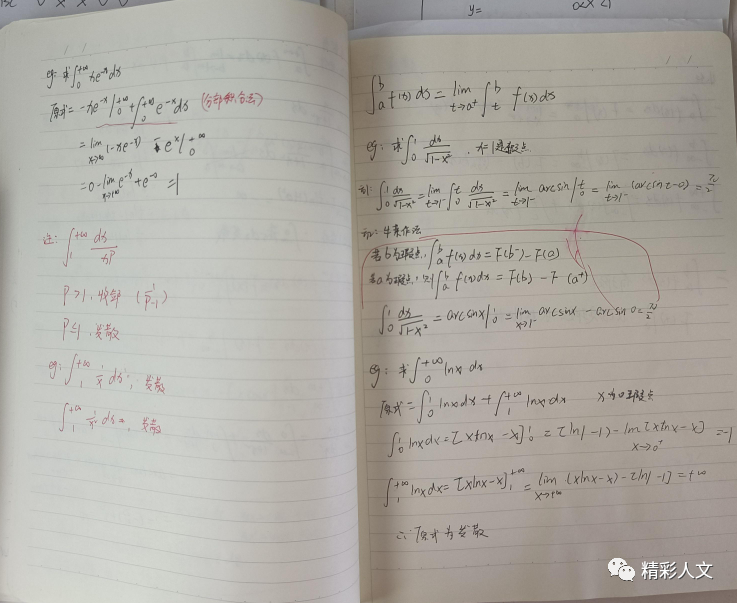 y=
eg: 求∫₀^{+∞} xe^{-x}dx
原式= -xe^{-x}|₀^{+∞} + ∫₀^{+∞} e^{-x}dx (分部积分法)
= lim_{x→+∞} (-xe^{-x}) - e^{-x}|₀^{+∞}
= 0 - lim_{x→+∞} e^{-x} + e^{-0} = 1
注: ∫₁^{+∞} dx/x^p
P>1, 收敛 (1/(p-1))
P≤1, 发散
eg: ∫₁^{+∞} 1/x dx, 发散
发散
∫ₐᵇ f(x)dx = lim_{t→a⁺} ∫ₜᵇ f(x)dx
eg: 求∫₀¹ dx/√(1-x²), x=1是瑕点.
∫₀¹ dx/√(1-x²) = lim_{t→1⁻} ∫₀ᵗ dx/√(1-x²) = lim_{t→1⁻} arcsinx|₀ᵗ = lim_{t→1⁻} (arcsint-0) = π/2
若b为瑕点, ∫ₐᵇ f(x)dx = F(b⁻) - F(a)
若a为瑕点, 则∫ₐᵇ f(x)dx = F(b) - F(a⁺)
∫₀¹ dx/√(1-x²) = arcsinx|₀¹ = lim_{x→1⁻} arcsinx - arcsin0 = π/2
eg: 求∫₀^{+∞} lnx dx
原式= ∫₀¹ lnxdx + ∫₁^{+∞} lnxdx x为0瑕点
∫₀¹ lnxdx = [xlnx-x]₀¹ = [ln1-1] - lim_{x→0⁺} [xlnx-x] = -1
∫₁^{+∞} lnxdx = [xlnx-x]₁^{+∞} = lim_{x→+∞} (xlnx-x) - [ln1-1] = +∞
∴原式为发散
精彩人文